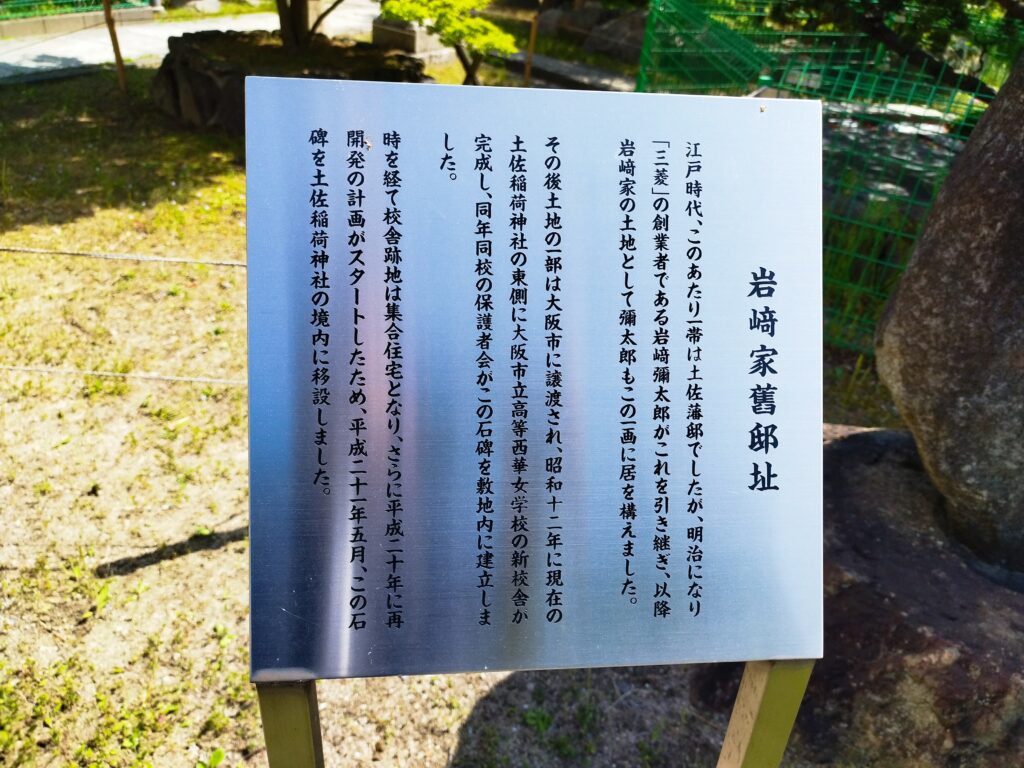 岩﨑家舊邸址
江戸時代、このあたり一帯は土佐藩邸でしたが、明治になり
「三菱」の創業者である岩﨑彌太郎がこれを引き継ぎ、以降
岩﨑家の土地として彌太郎もこの一画に居を構えました。
その後土地の一部は大阪市に譲渡され、昭和十二年に現在の
土佐稲荷神社の東側に大阪市立高等西華女学校の新校舎が
完成し、同年同校の保護者会がこの石碑を敷地内に建立しま
した。
時を経て校舎跡地は集合住宅となり、さらに平成二十年に再
開発の計画がスタートしたため、平成二十一年五月、この石
碑を土佐稲荷神社の境内に移設しました。